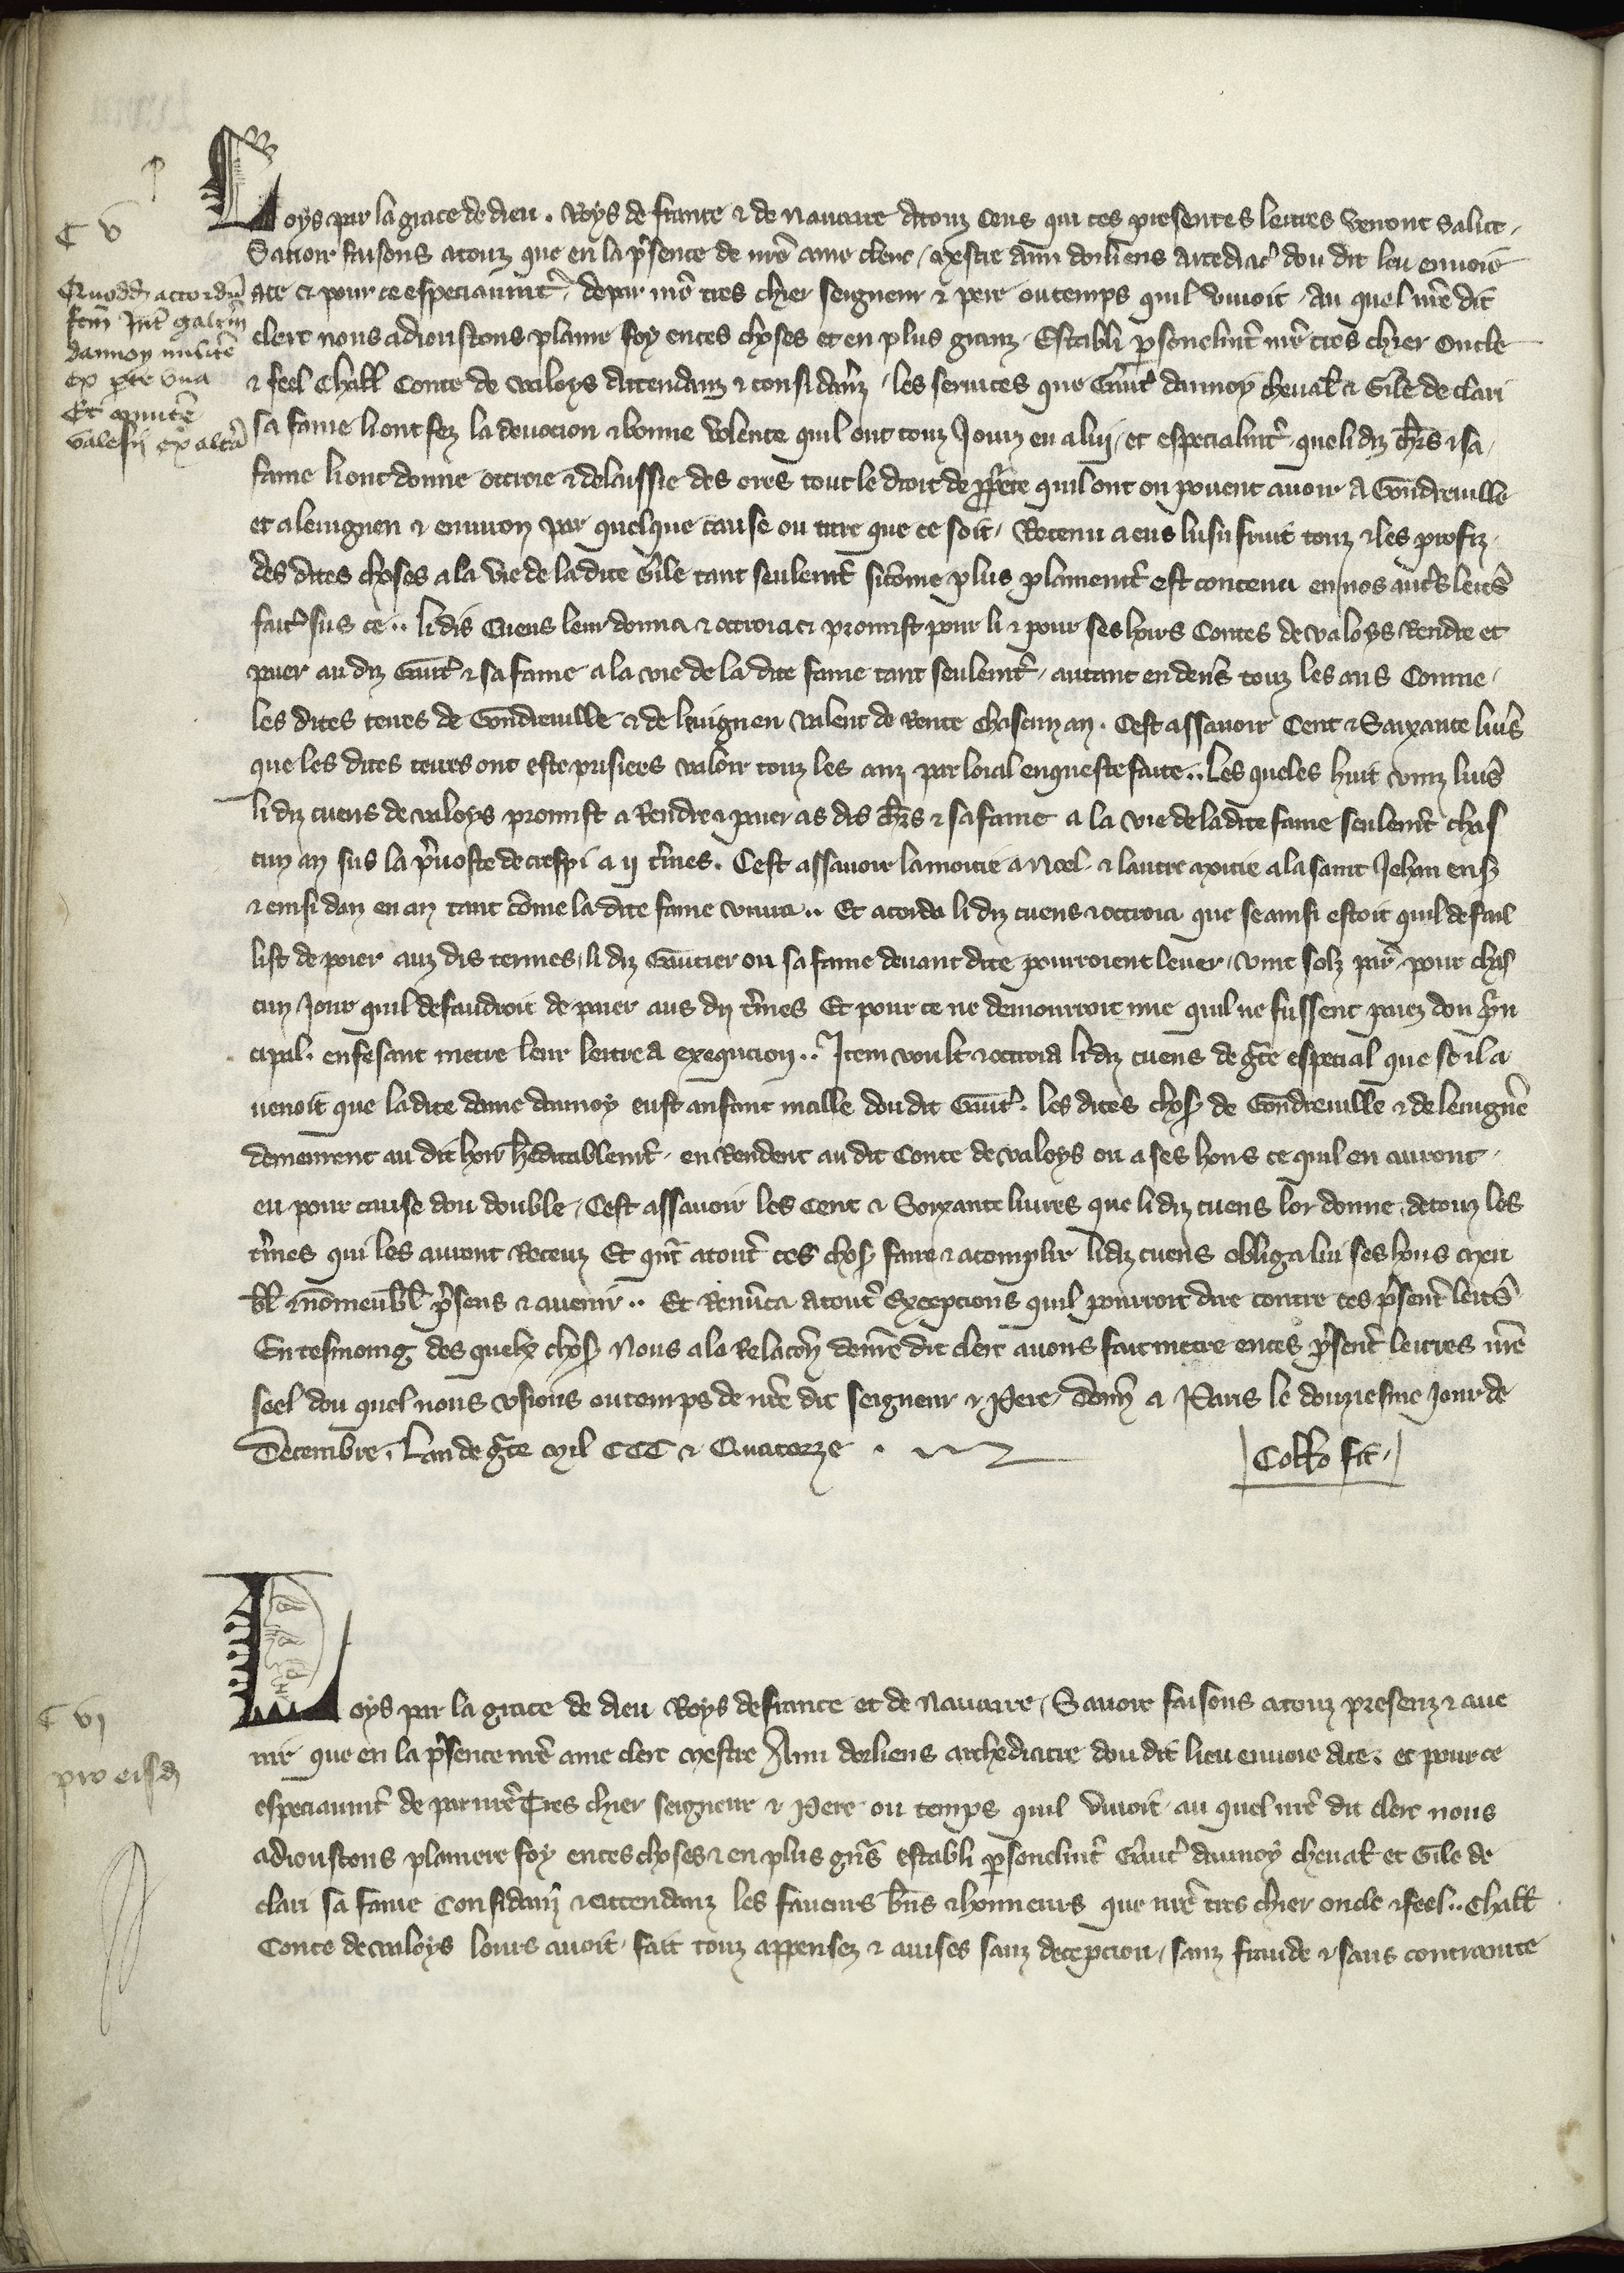 C V
Quoddã accordũ
fcm̃ Int̃ galtm̃
dannoy militẽ
ex pte vna
Et comitẽ
valesii ex altã
Loys par la grace de dieu . Roys de france & de nauarre Atouz Ceus qui ces presentes lettres verront Salut .
Sauoir faisons atouz que en la p̃sence de nr̃e ame clerc , Mestre Ami dorliens Arcediac̃ dou dit leu enuoie
ace et pour ce especiaumt̃ , depar nr̃e tres chier seigneur & pere outemps quil viuoit . Au quel nr̃e dit
clerc nous adioustons plaine foy en ces choses et en plus granz . Establi p̃sonelmt̃ nr̃e tres chier Oncle
& feel Chall̃ Conte de valoys Attendanz & considanz̃ , les seruices que Gaut̃ dannoy cheual̃ & Gile de clari
sa fame li ont fez la deuocion & bonne volente quil ont touz Iourz en a luy , et especialmt̃ . que li diz chr̃s & sa
fame li ont donne ottroie & delaissie des ores tout le droit de pp̃rete quil ont ou pouent auoir A Gondreuille
et aleuignen & enuiron par quelque cause ou titre que ce soit , Retenu a eus lusufruit touz & les profiz
des dites choses a la vie de la dite Gile tant seulemt̃ sicõme plus plainemt̃ est contenu en nos autr̃s lettr̃s
fait̃ sus ce .. li dis Cuens leur donna & ottroia et promist pour li & pour ses hoirs Contes de valoys Rendre et
paier au diz Gaut̃ & sa fame a la vie de la dite fame tant seulemt̃ , autant en dens̃ touz les ans Comme
les dites terres de Gondreuille & de leuignen valent de Rente Chascun an . Cest assauoir Cent & Saixante liur̃s
que les dites terres ont este prisiees valoir touz les anz par loial enqueste faite .. Les queles huit vinz liur̃s
li diz cuens de valoys promist a Rendre & paier as dis chr̃s & sa fame a la vie de ladite fame seulemt̃ chas
cun an sus la p̃uoste de crespi a ij t̃mes . Cest assauoir la moitie a Noel . & lautre moitie ala saint Iehan ens̃
& einsi dan en an tant cõme la dite fame viura .. Et acorda li diz cuens & ottroia que se ainsi estoit quil defail
list de paier auz dis termes , li diz Gautier ou sa fame deuant dite pourroient leuer , vint solz par̃ . pour chas
cun Iour quil defaudroit de paier aus diz t̃mes Et pour ce ne demourroit mie quil ne fussent paiez dou p̃n
cipal . en fesant metre leur lettre A exequcion .. Item voult & ottroia li diz cuens de gr̃ce especial que se il a
uenoit que ladite dame dannoy eust anfant malle dou dit Gaut̃ . les dites chos̃ de Gondreuille & de leuignẽ
demeurent au dit hoir h̃editablemt̃ . en Rendent au dit Conte de valoys ou a ses hoirs ce quil en auront
eu pour cause dou double , Cest assauoir les Cent & Soixante liures que li diz cuens lor donne , de touz les
t̃mes qui les auront Receuz Et qñt atout̃ ces chos̃ faire & acomplir li diz cuens obliga lui ses hoirs meu
bl̃ & nõmeubl̃ p̃sens & auenir .. Et Renũca atout̃ Excepcions quil pourroit dire contre ces p̃sent̃ lettr̃s
En tesmoing des quelx chos̃ Nous ala Relacõn de nr̃e dit clerc auons fait metre en ces p̃sent̃ lettres nr̃e
seel dou quel nous vsions ou temps de nr̃e dit seigneur & Pere . Donñ a Paris le douziesme Iour de
Decembre . Lan de gr̃ce Mil CCC & Quatorze .
Coll̃o fit .
C VI
pro eisd̃
Loys par la grace de dieu Roys de france et de Nauarre , Sauoir faisons atouz presenz & aue
nir que en la p̃sence nr̃e ame clerc Mestre Ami dorliens archediacre dou dit lieu enuoie ace . et pour ce
especiaumt̃ de par nr̃e Tres chier seigneur & Pere ou temps quil viuoit . au quel nr̃e dit clerc nous
adioustons plainere foy en ces choses & en plus gñs establi p̃sonelmt̃ Gaut̃ dannoy cheual̃ et Gile de
clari sa fame Considanz̃ & attendanz les faueurs bñs & honneurs que nr̃e tres chier oncle & feel .. Chall̃
Conte de valoys lours auoit . fait touz appensez & auises sanz decepcion , sanz fraude & sans contrainte